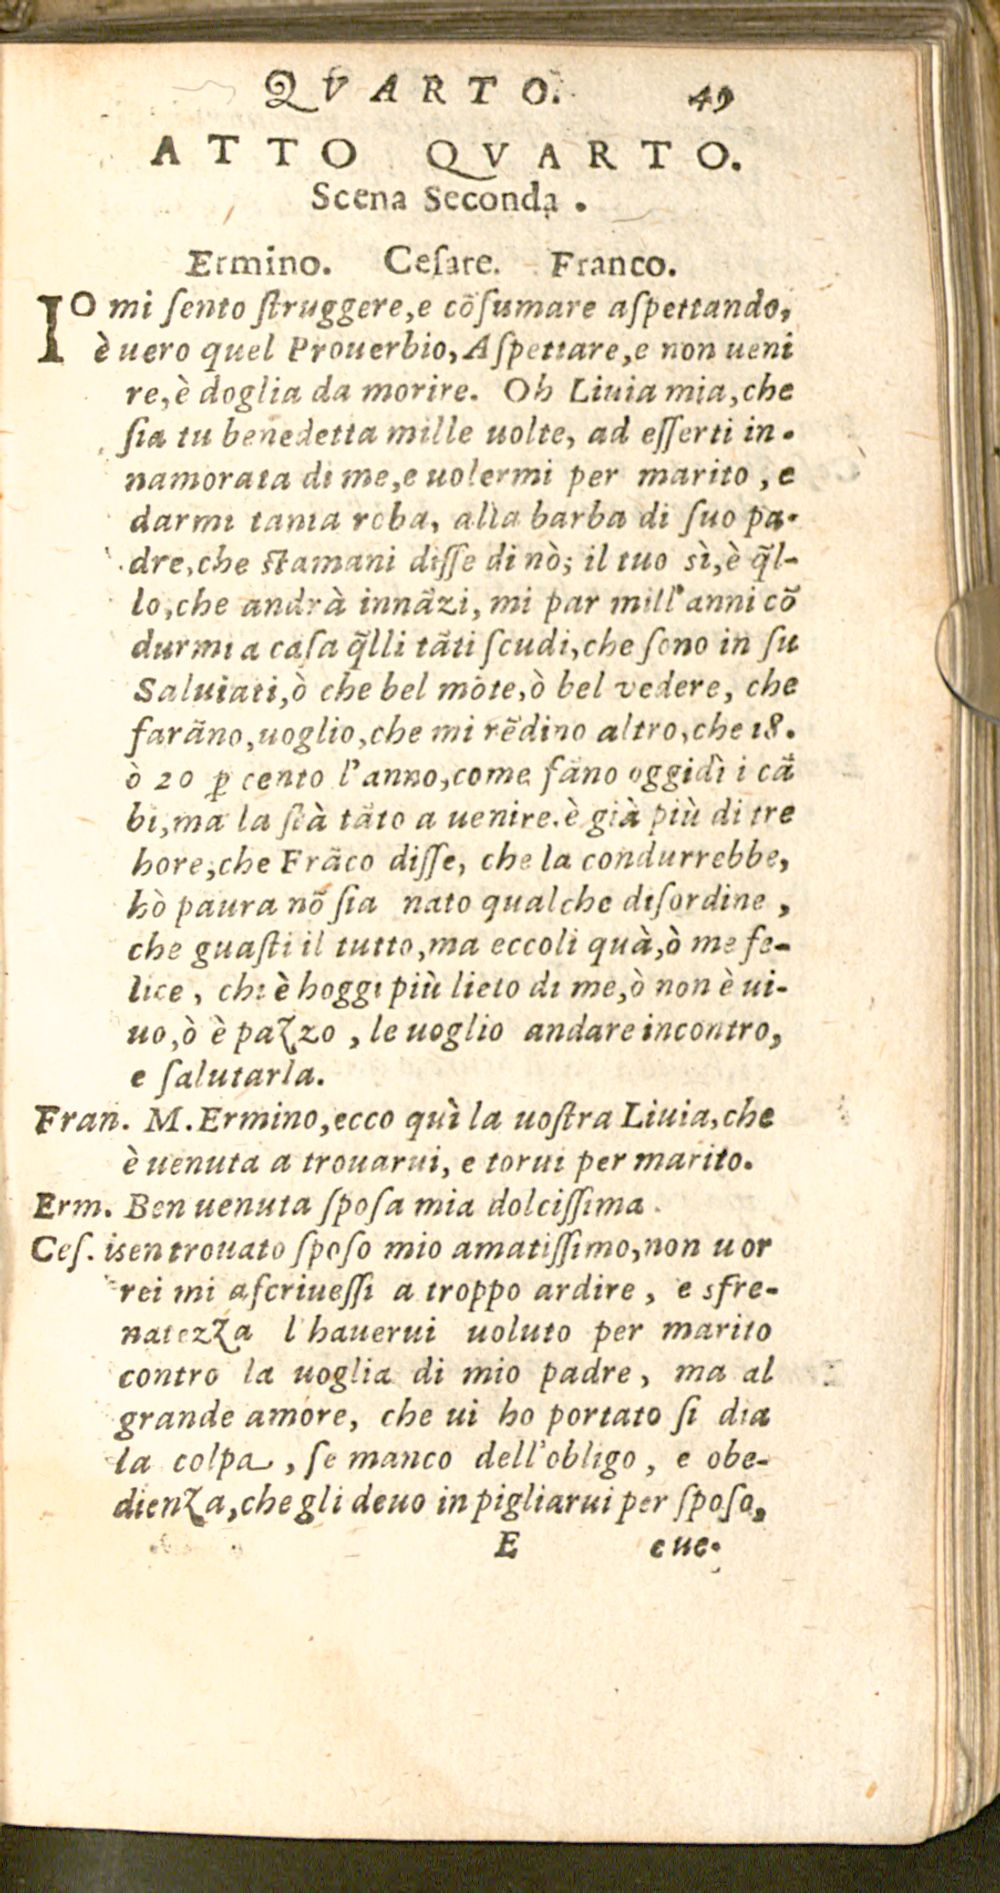 QVARTO. 49
ATTO QVARTO.
Scena Seconda.
Ermino. Ceſare. Franco.
IO mi ſento ſtruggere, e cõſumare aſpettando,
è uero quel Prouerbio, Aſpettare, e non ueni
re, è doglia da morire. Oh Liuia mia, che
ſia tu benedetta mille uolte, ad eſſerti in-
namorata di me, e uolermi per marito, e
darmi tanta roba, alla barba di ſuo pa-
dre, che ſtamani diſſe di nò; il tuo sì, è q̃l-
lo, che andrà innãzi, mi par mill'anni cõ
durmi a caſa q̃lli tãti ſcudi, che ſono in ſu
Saluiati, ò che bel mõte, ò bel vedere, che
farãno, uoglio, che mi rẽdino altro, che 18.
ò 20 ꝑ cento l'anno, come fãno oggidì i cã
bi, ma la ſtà tãto a uenire. è già più di tre
hore, che Frãco diſſe, che la condurrebbe,
hò paura nõ ſia nato qualche diſordine,
che guaſti il tutto, ma eccoli quà, ò me fe-
lice, chi è hoggi più lieto di me, ò non è ui-
uo, ò è pazzo, le uoglio andare incontro,
e ſalutarla.
Fran. M. Ermino, ecco quì la uoſtra Liuia, che
è uenuta a trouarui, e torui per marito.
Erm. Ben uenuta ſpoſa mia dolciſſima.
Ceſ. Ben trouato ſpoſo mio amatiſſimo, non uor
rei mi aſcriueſſi a troppo ardire, e sfre-
natezza l'hauerui uoluto per marito
contro la uoglia di mio padre, ma al
grande amore, che ui ho portato ſi dia
la colpa, ſe manco dell'obligo, e obe-
dienza, che gli deuo in pigliarui per ſpoſo,
E cue-